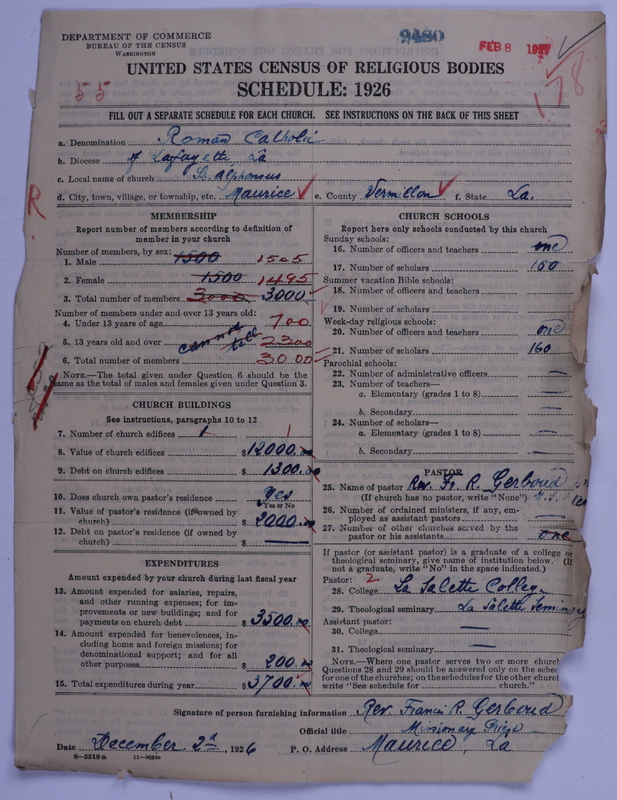 DEPARTMENT OF COMMERCE
BUREAU OF THE CENSUS
WASHINGTON
9480
FEB 8 1927
55
178
UNITED STATES CENSUS OF RELIGIOUS BODIES
SCHEDULE: 1926
FILL OUT A SEPARATE SCHEDULE FOR EACH CHURCH. SEE INSTRUCTIONS ON THE BACK OF THIS SHEET
a. Denomination Roman Catholic
b. Diocese of Lafayette, La
c. Local name of church St. Alphonsus
d. City, town, village, or township, etc. Maurice e. County Vermilion f. State La.
R
MEMBERSHIP
Report number of members according to definition of
member in your church
Number of members, by sex:
1. Male 1500 1505
2. Female 1500 1495
3. Total number of members 3000 3000
Number of members under and over 13 years old:
4. Under 13 years of age 700
5. 13 years old and over cannot tell 2300
6. Total number of members 3000
NOTE.—The total given under Question 6 should be the
same as the total of males and females given under Question 3.
CHURCH BUILDINGS
See instructions, paragraphs 10 to 12
7. Number of church edifices 1 1
8. Value of church edifices $12000.00
9. Debt on church edifices $1300.00
10. Does church own pastor's residence yes
Yes or No
11. Value of pastor's residence (if owned by
church) $2000.00
12. Debt on pastor's residence (if owned by
church) $ —
EXPENDITURES
Amount expended by your church during last fiscal year
13. Amount expended for salaries, repairs,
and other running expenses; for im-
provements or new buildings; and for
payments on church debt $3500.00
14. Amount expended for benevolences, in-
cluding home and foreign missions; for
denominational support; and for all
other purposes $200.00
15. Total expenditures during year $3700.00
CHURCH SCHOOLS
Report here only schools conducted by this church
Sunday schools:
16. Number of officers and teachers one
17. Number of scholars 160
Summer vacation Bible schools:
18. Number of officers and teachers
19. Number of scholars
Week-day religious schools:
20. Number of officers and teachers one
21. Number of scholars 160
Parochial schools:
22. Number of administrative officers —
23. Number of teachers—
a. Elementary (grades 1 to 8) —
b. Secondary —
24. Number of scholars—
a. Elementary (grades 1 to 8) —
b. Secondary —
PASTOR
25. Name of pastor Rev. Fr. R. Gerboud
(If church has no pastor, write "None")
26. Number of ordained ministers, if any, em-
ployed as assistant pastors —
27. Number of other churches served by the
pastor or his assistants one
If pastor (or assistant pastor) is a graduate of a college or
theological seminary, give name of institution below. (If
not a graduate, write "No" in the space indicated.)
Pastor: 2
28. College La Salette College
29. Theological seminary La Salette Seminary
Assistant pastor:
30. College —
31. Theological seminary —
NOTE.—Where one pastor serves two or more church
Questions 28 and 29 should be answered only on the sche
for one of the churches; on the schedules for the other church
write "See schedule for church."
Signature of person furnishing information Rev. Francis R. Gerboud
Official title Missionary Priest
Date December 2d, 1926 P. O. Address Maurice, La
8—5318a 11—9684a